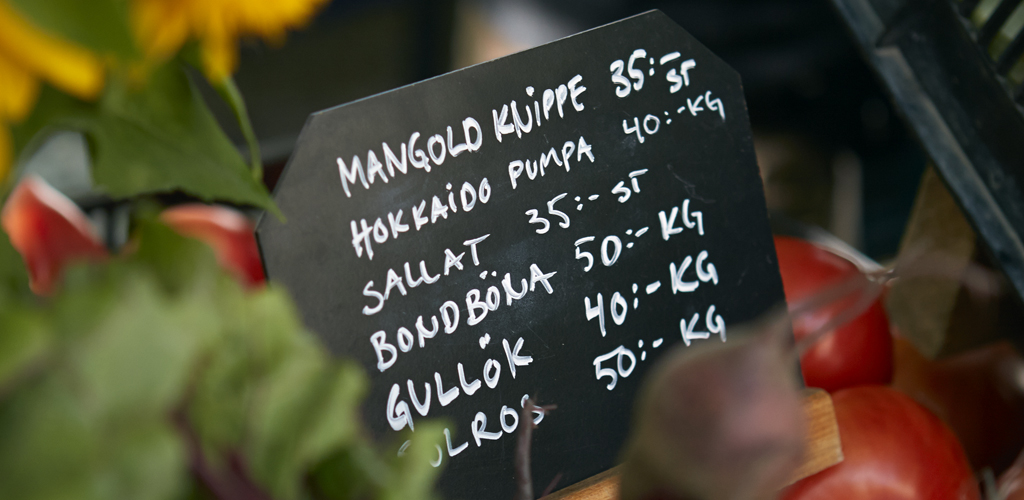 MANGOLD KNIPPE 35:- ST
HOKKAIDO PUMPA 40:-KG
SALLAT 35:- ST
BONDBÖNA 50:- KG
GULLÖK 40:- KG
50:- KG